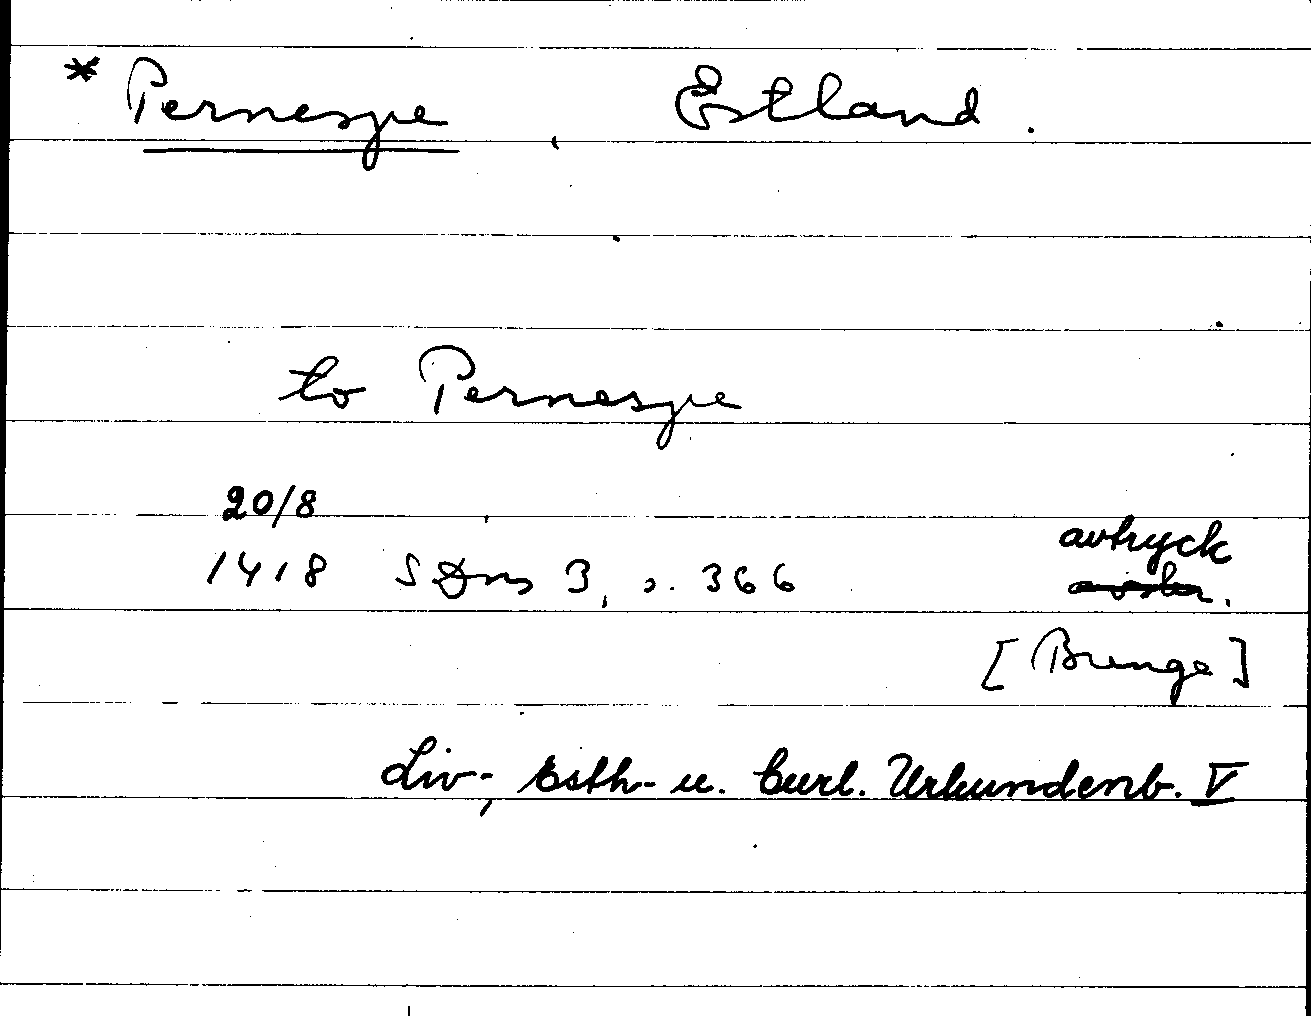 * Pernespe, Estland.
to Pernespe
20/8
1418 SDns 3, s. 366 avtryck
[Bunge]
Liv-, Esth- u. Curl. Urkundenb. V